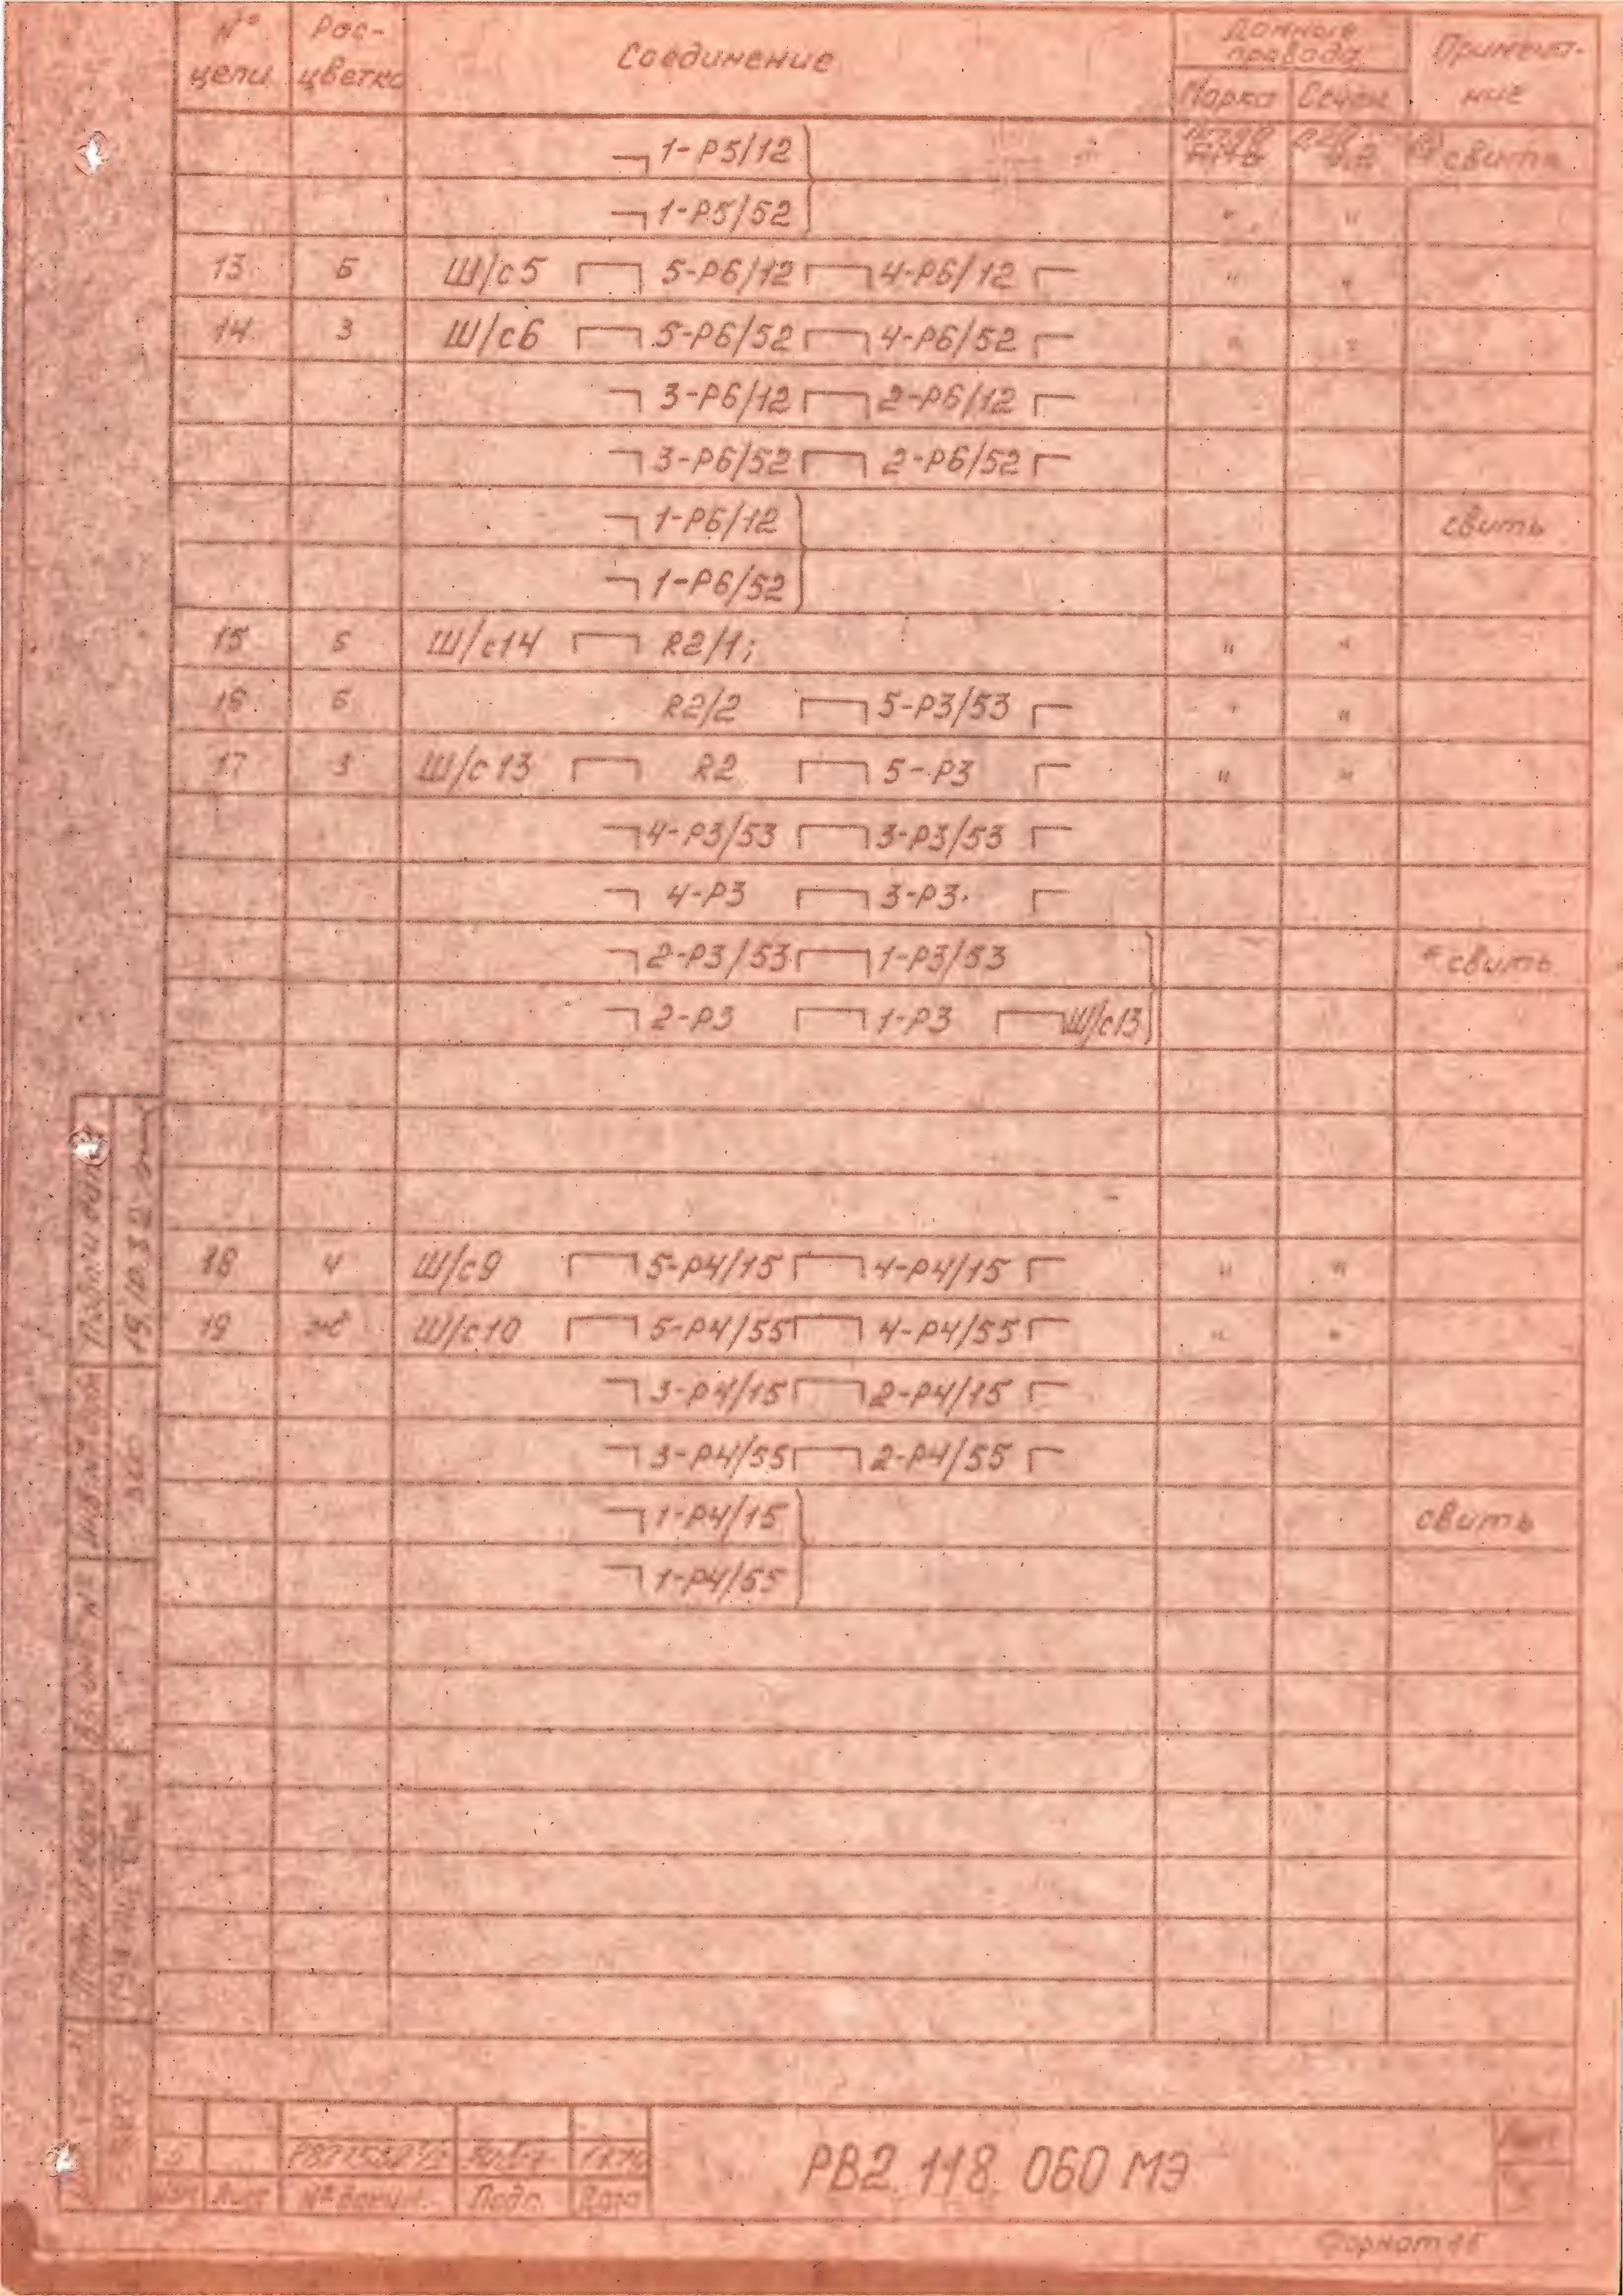 № цепи Рас-цветка Соединение Данные провода Примеча-ние
Марка Сечен.
1-Р5/12 свить
1-Р5/52 " "
13 Б Ш/с5 5-Р6/12 4-Р6/12 " "
14 З Ш/с6 5-Р6/52 4-Р6/52 " "
3-Р6/12 2-Р6/12
3-Р6/52 2-Р6/52
1-Р6/12 свить
1-Р6/52
15 Б Ш/с14 R2/1; " "
16 Б R2/2 5-Р3/53 " "
17 З Ш/с13 R2 5-Р3 " "
4-Р3/53 3-Р3/53
4-Р3 3-Р3
2-Р3/53 1-Р3/53 * свить
2-Р3 1-Р3 Ш/с13
18 Ч Ш/с9 5-Р4/15 4-Р4/15 " "
19 Ж Ш/с10 5-Р4/55 4-Р4/55 " "
3-Р4/15 2-Р4/15
3-Р4/55 2-Р4/55
1-Р4/15 свить
1-Р4/55
Подп. и дата
Инв. № дубл.
Взам. инв. №
Подп. и дата
5
Изм Лист № докум. Подп. Дата
РВ2.118.060 МЭ
Лист
5
Формат 11